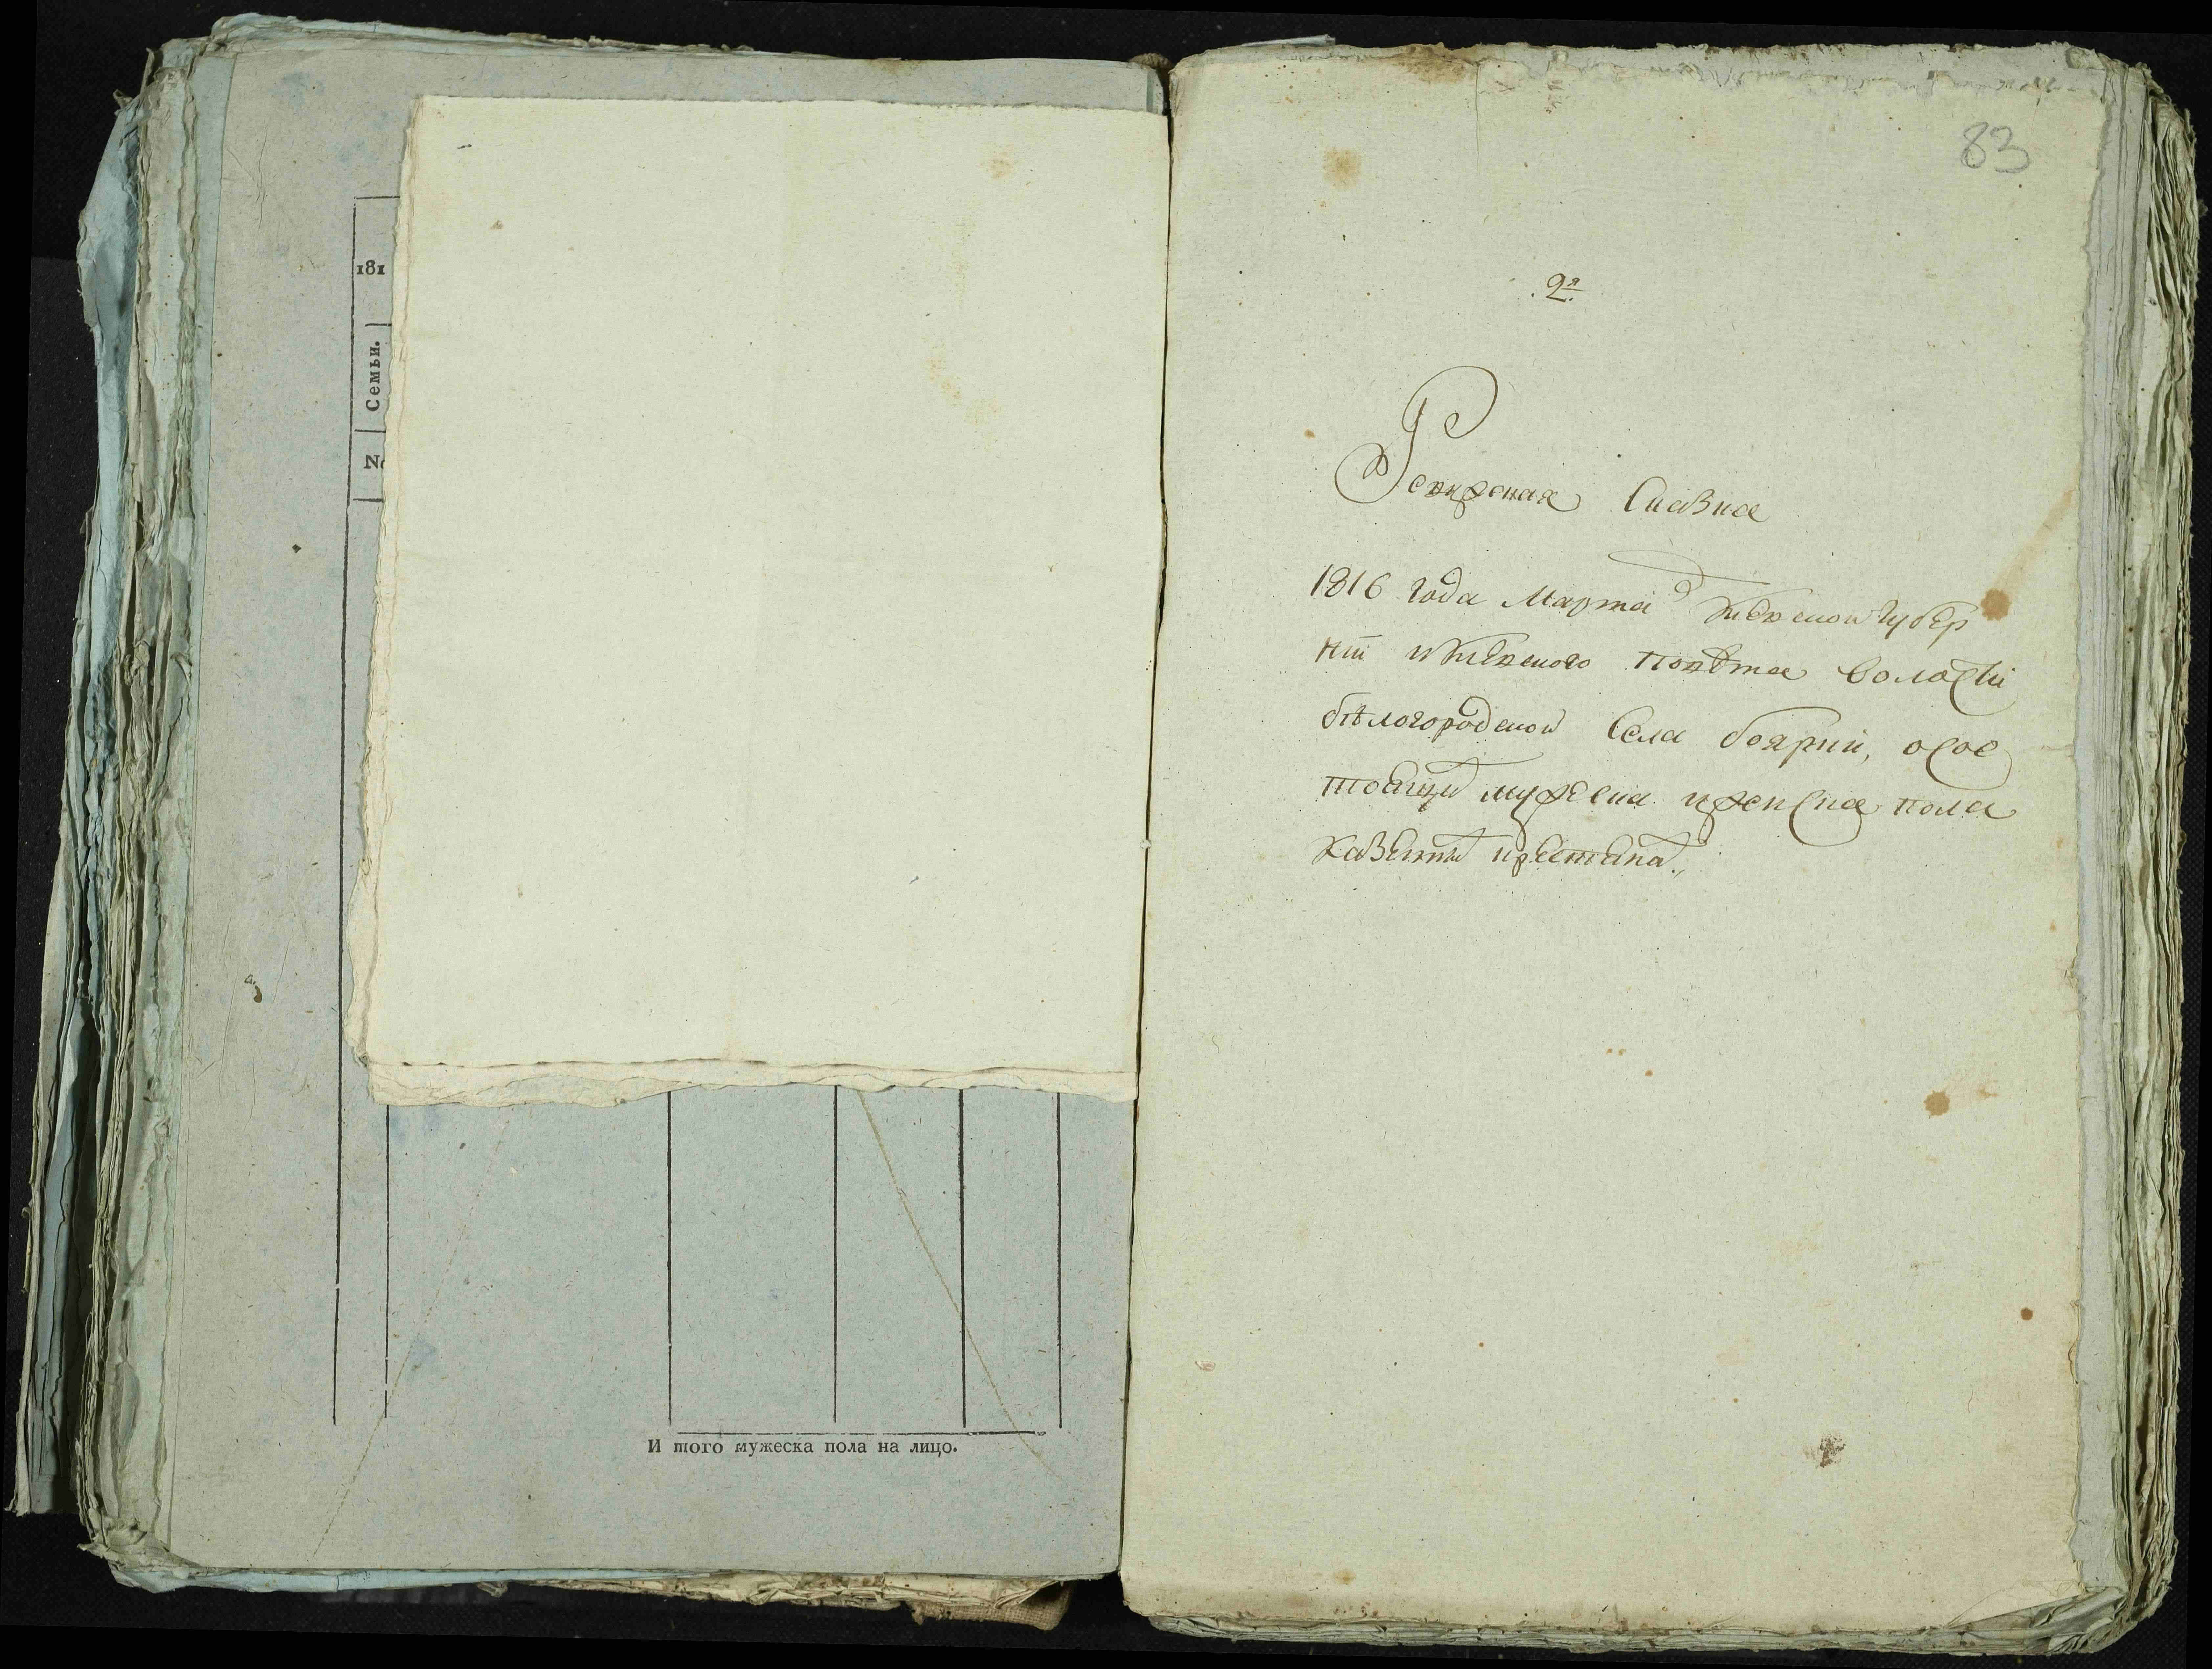 181
Семьи.
№
И того мужеска пола на лицо.
83
2я
Ревизская Сказка
1816 года Марта Киевской Губер
нии и Киевского Повета Волости
бѣлогородской Села бояркі, о сос
тоящих мужеска и женска пола
казенных крестьянах